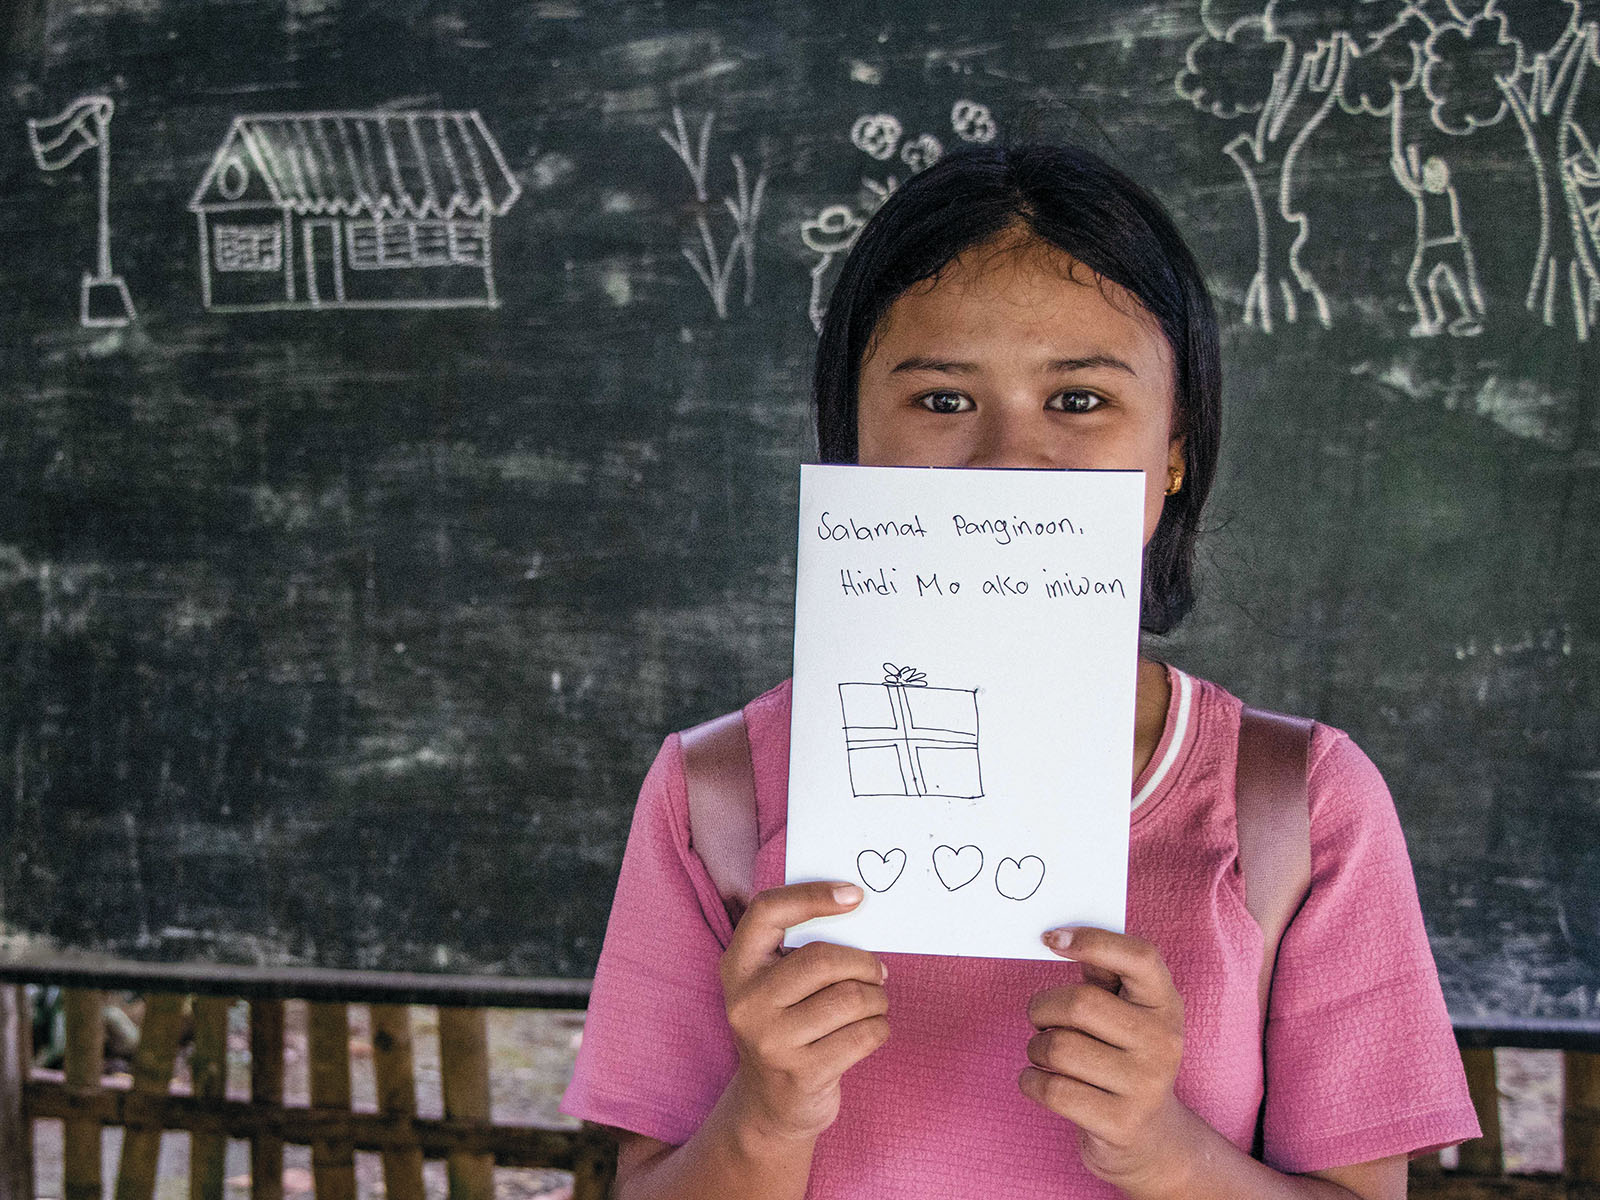 Salamat Panginoon,
Hindi Mo ako iniwan